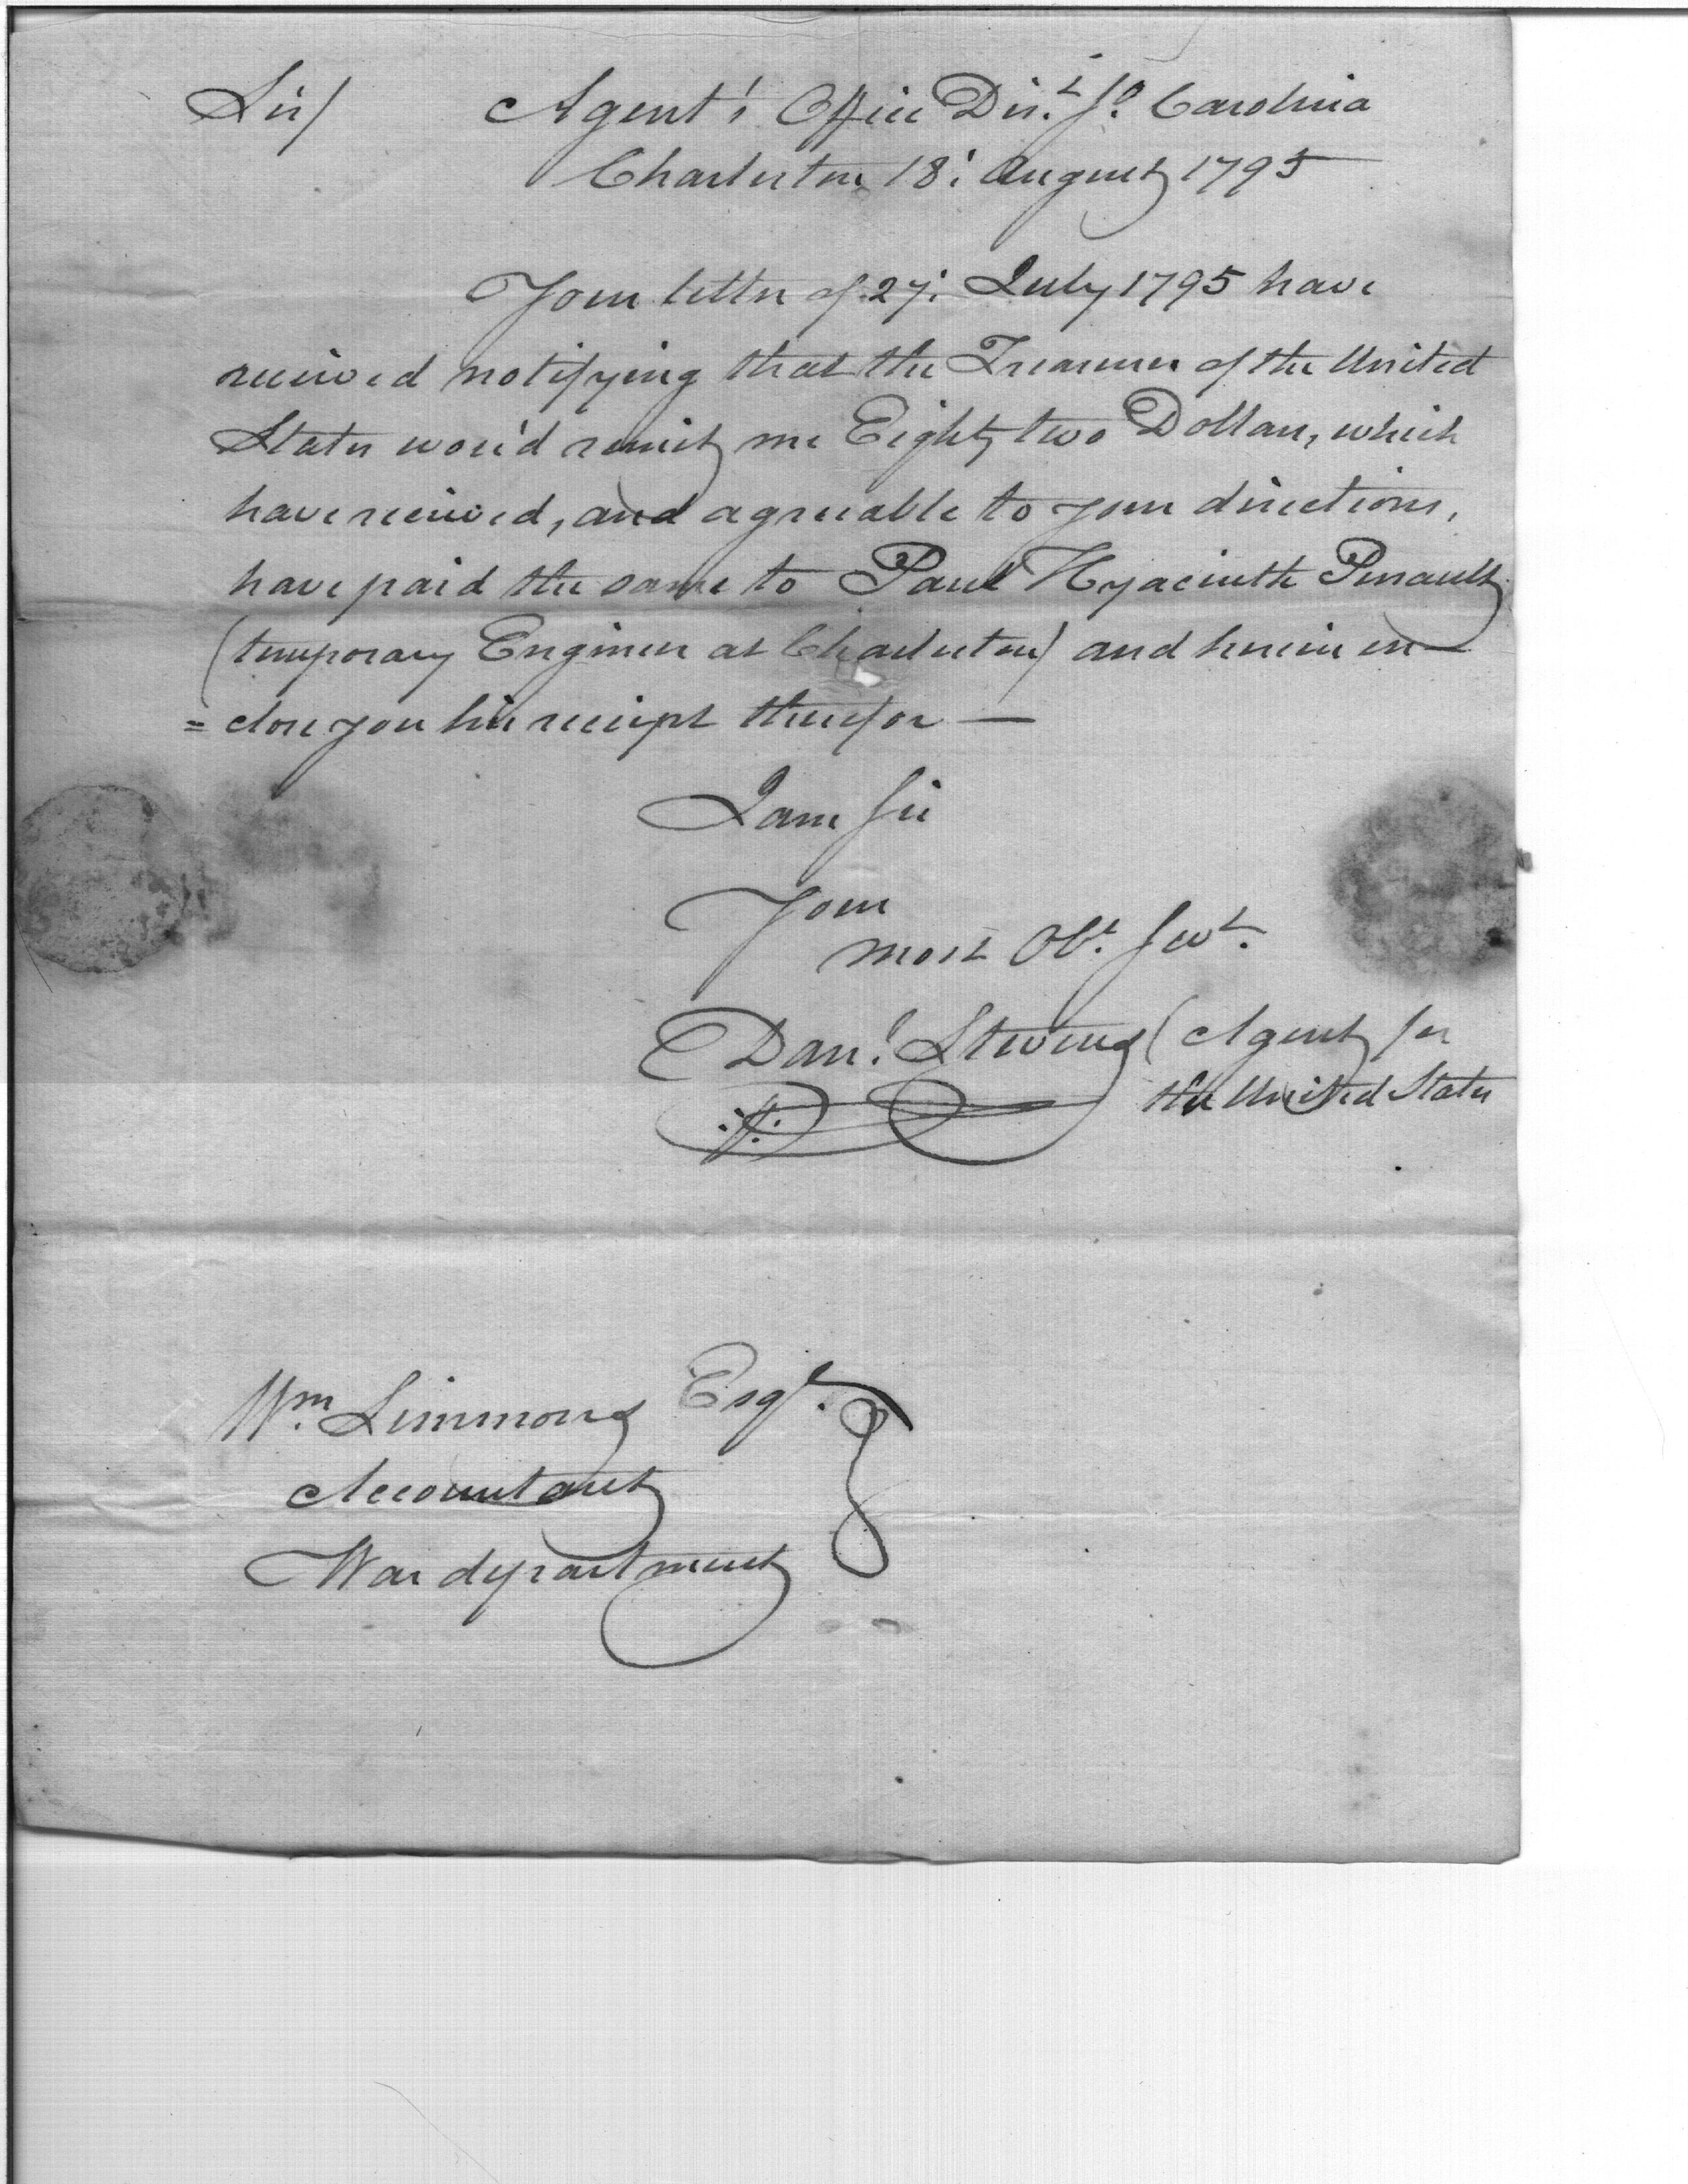 Sir/ Agent's Office Dis.t So. Carolina
Charleston 18: August 1795
Your letter of 27: July 1795 have
received notifying that the Treasurer of the United
States wou'd remit me Eighty two Dollars, which
have received, and agreeable to your directions,
have paid the same to Paul Hyacinthe Perrault
(temporary Engineer at Charleston) and herein en-
= close you his receipt therefor —
I am Sir
Your
most Obt. Servt.
Danl. Stevens (Agent for
the United States
Wm. Simmons Esqr.
Accountant
War department